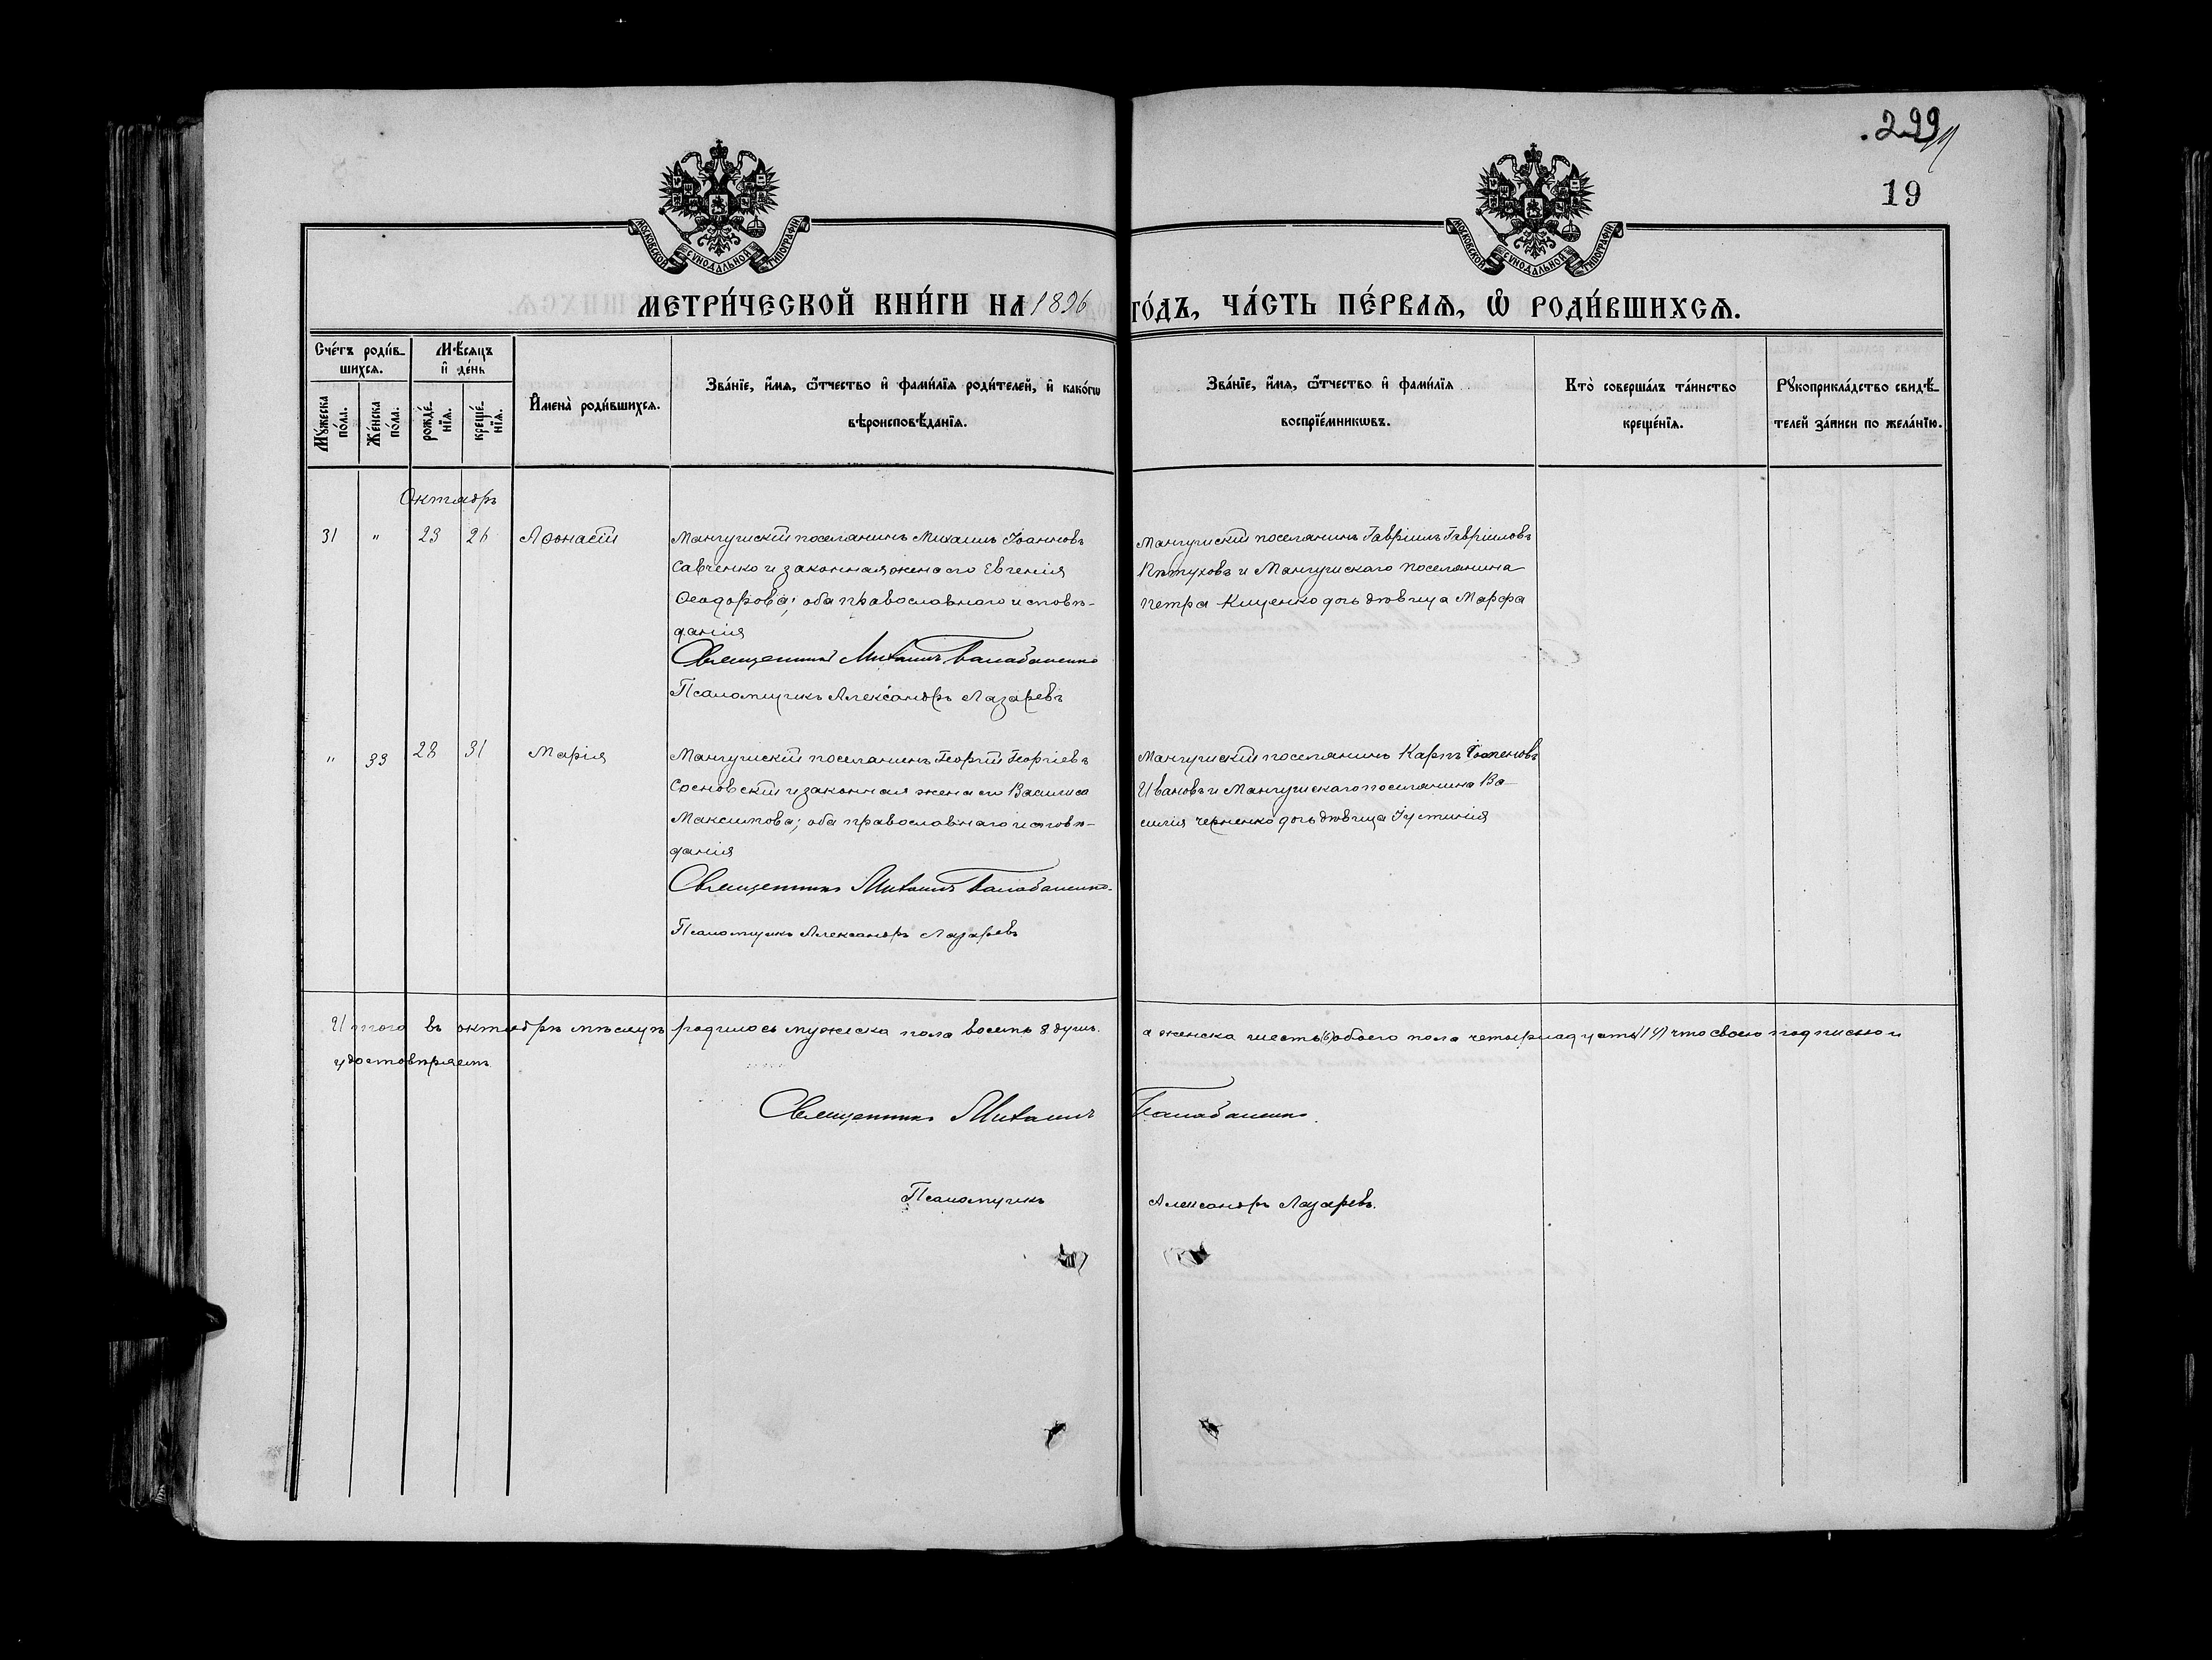 299
19
МОСКОВСКОЙ СѴНОДАЛЬНОЙ ТИПОГРАФІИ
МОСКОВСКОЙ СѴНОДАЛЬНОЙ ТИПОГРАФІИ
МЕТРИ́ЧЕСКОЙ КНИ́ГИ НА 1896 ГО́ДЪ, ЧА́СТЬ ПЕ́РВАѦ, Ѡ҆ РОДИ́ВШИХСѦ.
Сче́тъ роди́в-
шихсѧ.
Мѣ́сѧцъ
и҆ де́нь
Мꙋ́жеска
по́ла.
Же́нска
по́ла.
рожде́-
нїѧ.
креще́-
нїѧ.
И҆мена̀ роди́вшихсѧ.
Зва́нїе, и҆́мѧ, ѻ҆́тчество и҆ фамⷤи́лїѧ роди́телей, и҆ како́гѡ
вѣроисповѣ́данїѧ.
Зва́нїе, и҆́мѧ, ѻ҆́тчество и҆ фами́лїѧ
воспрїе́мникѡвъ.
Кто̀ соверша́лъ та́инство
креще́нїѧ.
Рꙋкоприкла́дство свидѣ́-
телей за́писи по жела́нїю.
Октябрь
31 " 23 26 Аѳонасій
Мангушскій поселянинъ Михаилъ Іоанновъ
Савченко и законная жена его Евгенія
Ѳеодорова; оба православнаго исповѣ-
данія
Священникъ Михаилъ Балабаненко
Псаломщикъ Александръ Лазаревъ
Мангушскій поселянинъ Гавріилъ Гавріиловъ
Пѣтуховъ и Мангушскаго поселянина
Петра Кищенко дочь дѣвица Марфа
" 33 28 31 Марія
Мангушскій поселянинъ Георгій Георгіевъ
Сосновскій и законная жена его Василиса
Максимова; оба православнаго исповѣ-
данія
Священникъ Михаилъ Балабаненко
Псаломщикъ Александръ Лазаревъ
Мангушскій поселянинъ Карпъ
Ивановъ и Мангушскаго поселянина Ва-
силія Черненко дочь дѣвица Іустинія
Итого въ октябрѣ мѣсяцѣ родилось мужеска пола восемь 8 душъ. а женска шесть (6) обоего пола четырнадцать (14) что своею подписью и
удостовѣряемъ
Священникъ Михаилъ Балабаненко.
Псаломщикъ Александръ Лазаревъ.